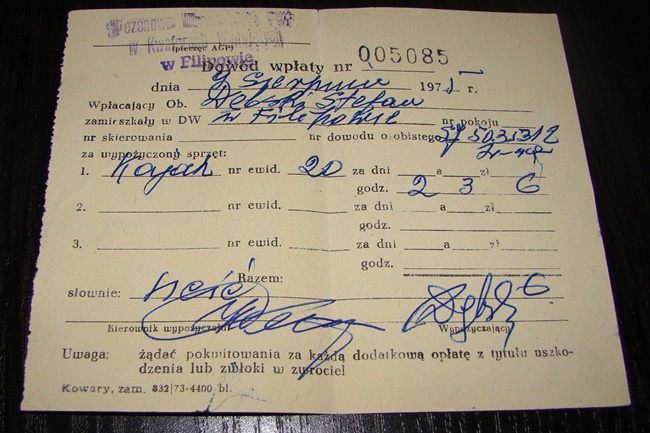 w Kwaterach Prywatnych
w Filipowie
(pieczęć AGP)
Dowód wpłaty nr 005085
dnia 9 Sierpnia 1975 r.
Wpłacający Ob. Dębski Stefan
zamieszkały w DW w Filipowie nr pokoju
nr skierowania nr dowodu osobistego 5031312
za wypożyczony sprzęt:
1. Kajak nr ewid. 20 za dni a zł
godz. 2 3 6
2. nr ewid. za dni a zł
godz.
3. nr ewid. za dni a zł
godz.
Razem: 6
słownie: sześć
Kierownik wypożyczalni Wypożyczający
Uwaga: żądać pokwitowania za każdą dodatkową opłatę z tytułu uszko-
dzenia lub zwłoki w zwrocie!
Kowary, zam. 832/73-4400 bl.